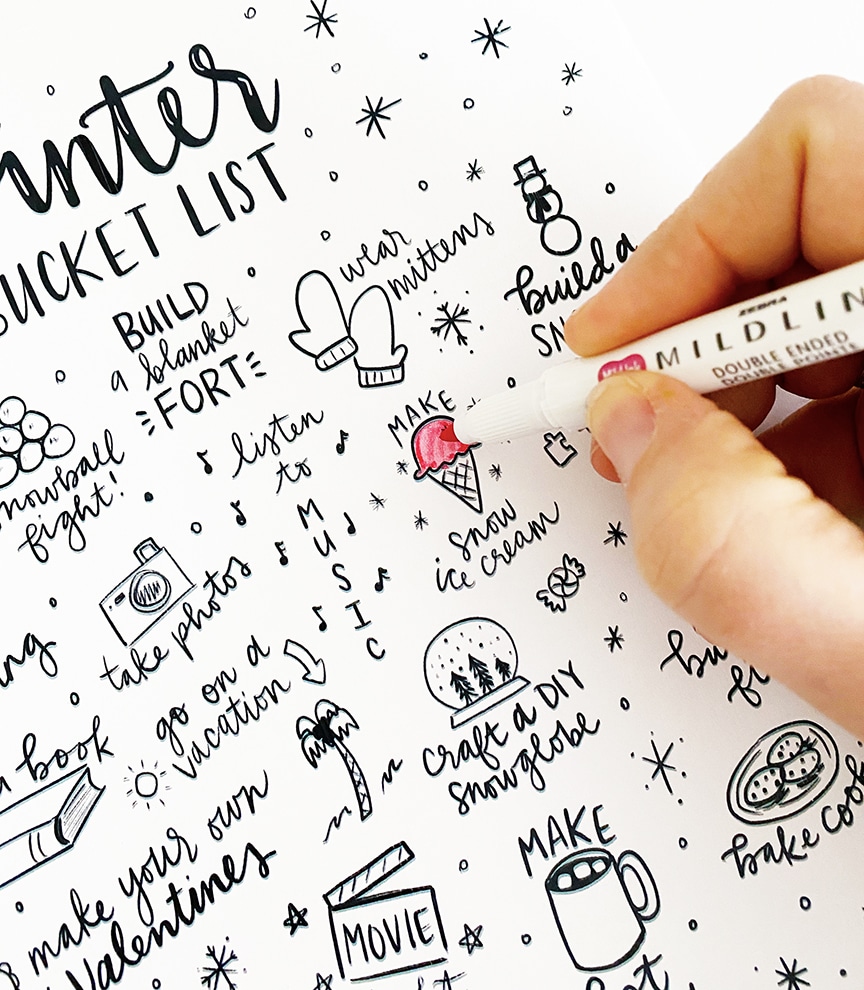 BUCKET LIST
BUILD
a blanket
FORT
wear
mittens
build a
fight!
listen
to
MUSIC
MAKE
snow
ice cream
take photos
go on a
vacation
craft a DIY
snowglobe
book
make your own
Valentines
MOVIE
MAKE
bake
ZEBRA
DOUBLE ENDED